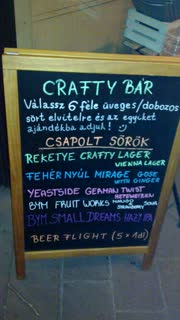 CRAFTY BÁR
Válassz 6 féle üveges/dobozos
sört elvitelre és az egyiket
ajándékba adjuk! :)
CSAPOLT SÖRÖK
REKETYE CRAFTY LAGER
VIENNA LAGER
FEHÉR NYÚL MIRAGE GOSE
WITH GINGER
YEASTSIDE GERMAN TWIST
HEFEWEIZEN
BYM FRUIT WORKS MANGO SOUR
STRAWBERRY
BYM SMALL DREAMS HAZY IPA
BEER FLIGHT (5 x 1dl)